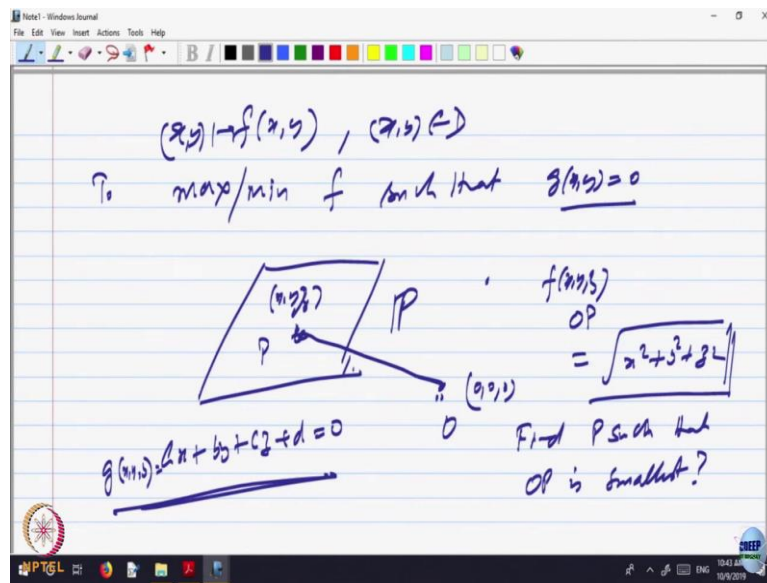 Note1 - Windows Journal
File Edit View Insert Actions Tools Help
B I
(x,y) ↦ f(x,y) , (x,y) ∈ D
To max/min f such that g(x,y) = 0
(x,y,z)
P
ℙ
(0,0,0)
O
f(x,y,z)
OP
= √x²+y²+z²
g(x,y,z) = ax + by + cz + d = 0
Find P such that
OP is smallest?
NPTEL
CDEEP
ENG
10:43 AM
10/9/2019